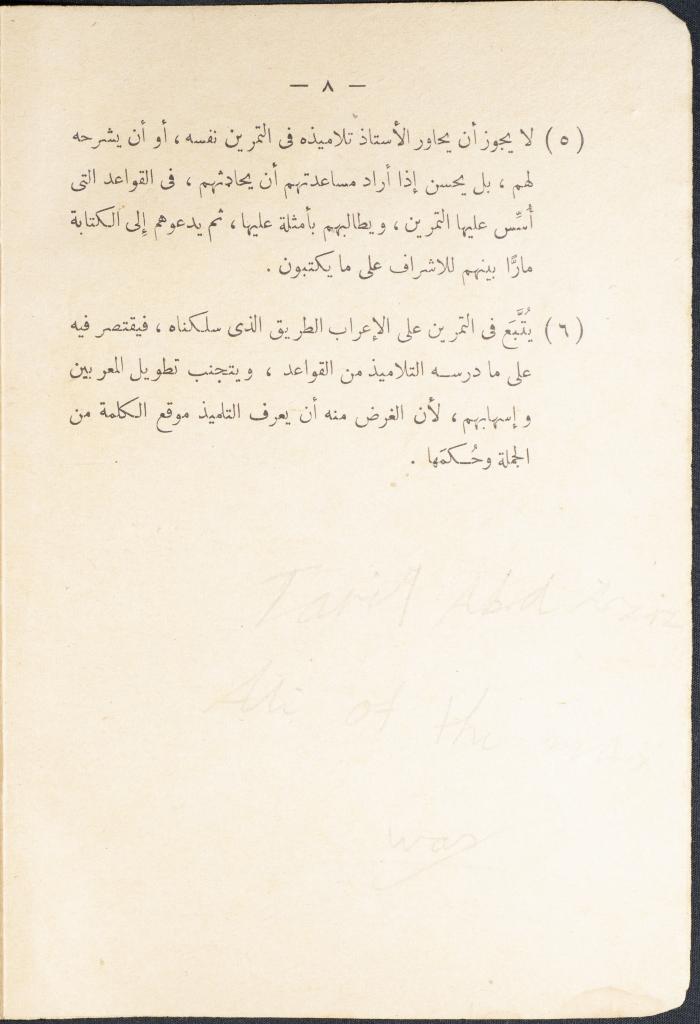 — ٨ —
(٥) لا يجوز أن يحاور الأستاذ تلاميذه فى التمرين نفسه ، أو أن يشرحه
لهم ، بل يحسن إذا أراد مساعدتهم أن يحادثهم ، فى القواعد التى
أُسِّس عليها التمرين ، ويطالبهم بأمثلة عليها ، ثم يدعوهم إلى الكتابة
مارًّا بينهم للاشراف على ما يكتبون .
(٦) يُتَّبَع فى التمرين على الإعراب الطريق الذى سلكناه ، فيقتصر فيه
على ما درسه التلاميذ من القواعد ، ويتجنب تطويل المعربين
وإسهابهم ، لأن الغرض منه أن يعرف التلميذ موقع الكلمة من
الجملة وحُكمَها .
Abd
Ali of the
was